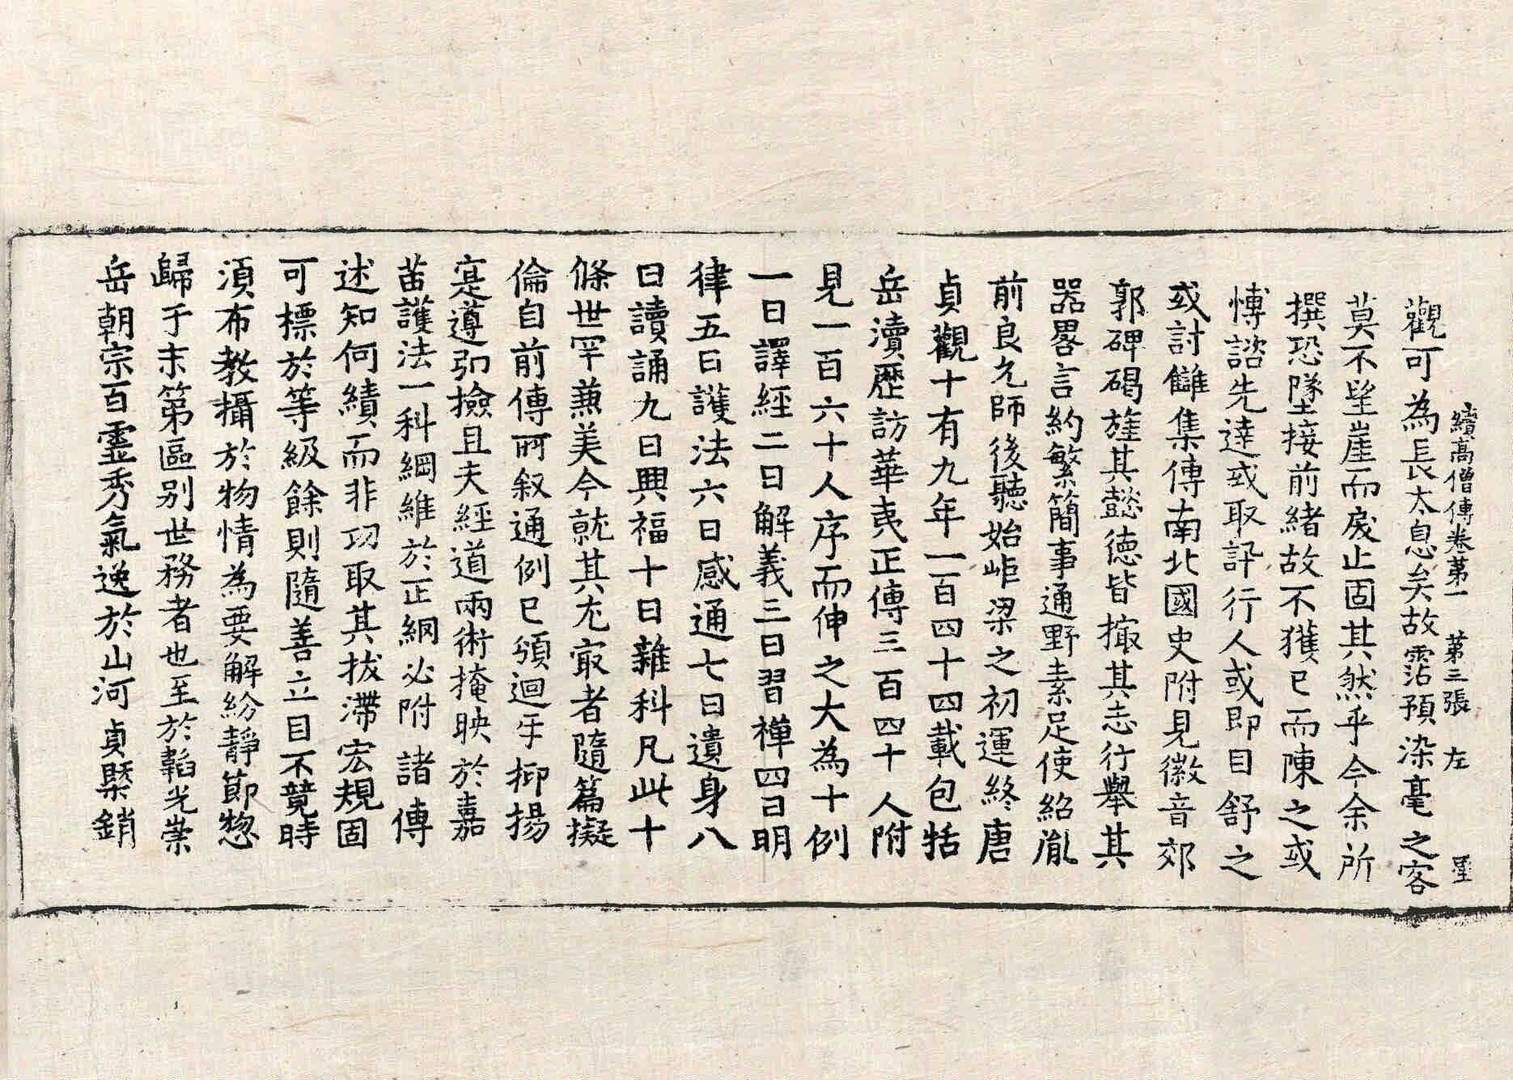 續高僧傳卷第一 第三張 左
觀可為長太息矣故霑預染毫之客
莫不望崖而戾止固其然乎今余所
撰恐墜接前緒故不獲已而陳之或
愽諮先達或取訊行人或即目舒之
或討讎集傳南北國史附見徽音郊
郭碑碣旌其懿德皆撮其志行舉其
器畧言約繁簡事通野素足使紹胤
前良允師後聽始岠梁之初運終唐
貞觀十有九年一百四十四載包括
岳瀆歷訪華夷正傳三百四十人附
見一百六十人序而伸之大為十例
一曰譯經二曰解義三曰習禪四曰明
律五曰護法六曰感通七曰遺身八
曰讀誦九曰興福十曰雜科凡此十
條世罕兼美今就其尤㝡者隨篇擬
倫自前傳所叙通例已頒迴乎抑揚
寔遵弘撿且夫經道兩術掩映於嘉
苗護法一科綱維於正網必附諸傳
述知何績而非功取其拔滯宏規固
可標於等級餘則隨善立目不競時
湏布教攝於物情為要解紛靜節惣
歸于末第區別世務者也至於韜光崇
岳朝宗百靈秀氣逸於山河貞槩銷